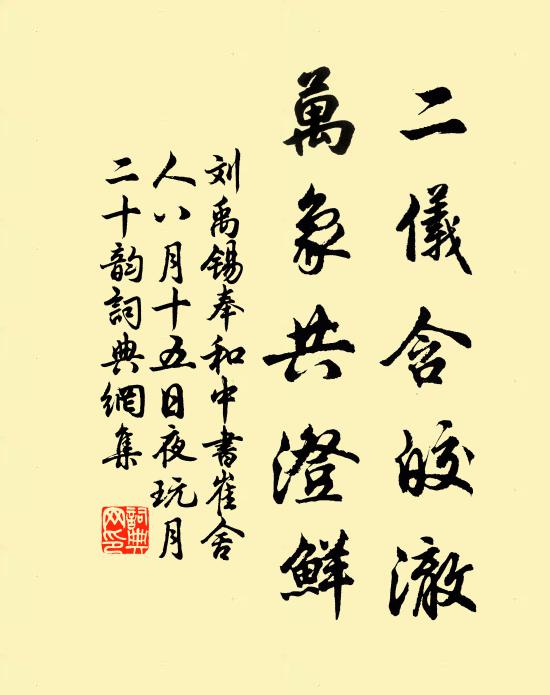 二儀含皎澈
萬象共澄鮮
刘禹锡奉和中書崔舍
人八月十五日夜玩月
二十韵詞典網集
詞典
网印